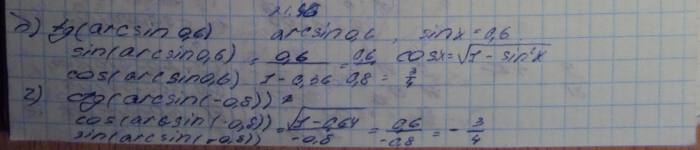 б) tg(arcsin 0,6) arcsin 0,6, sin x = 0,6
sin(arcsin 0,6) / cos(arcsin 0,6) = 0,6 / 1 - 0,36 = 0,6 / 0,8 = 3/4 cos x = √1 - sin²x
г) ctg(arcsin(-0,8))
cos(arcsin(-0,8)) / sin(arcsin(-0,8)) = √1 - 0,64 / -0,8 = 0,6 / -0,8 = - 3/4